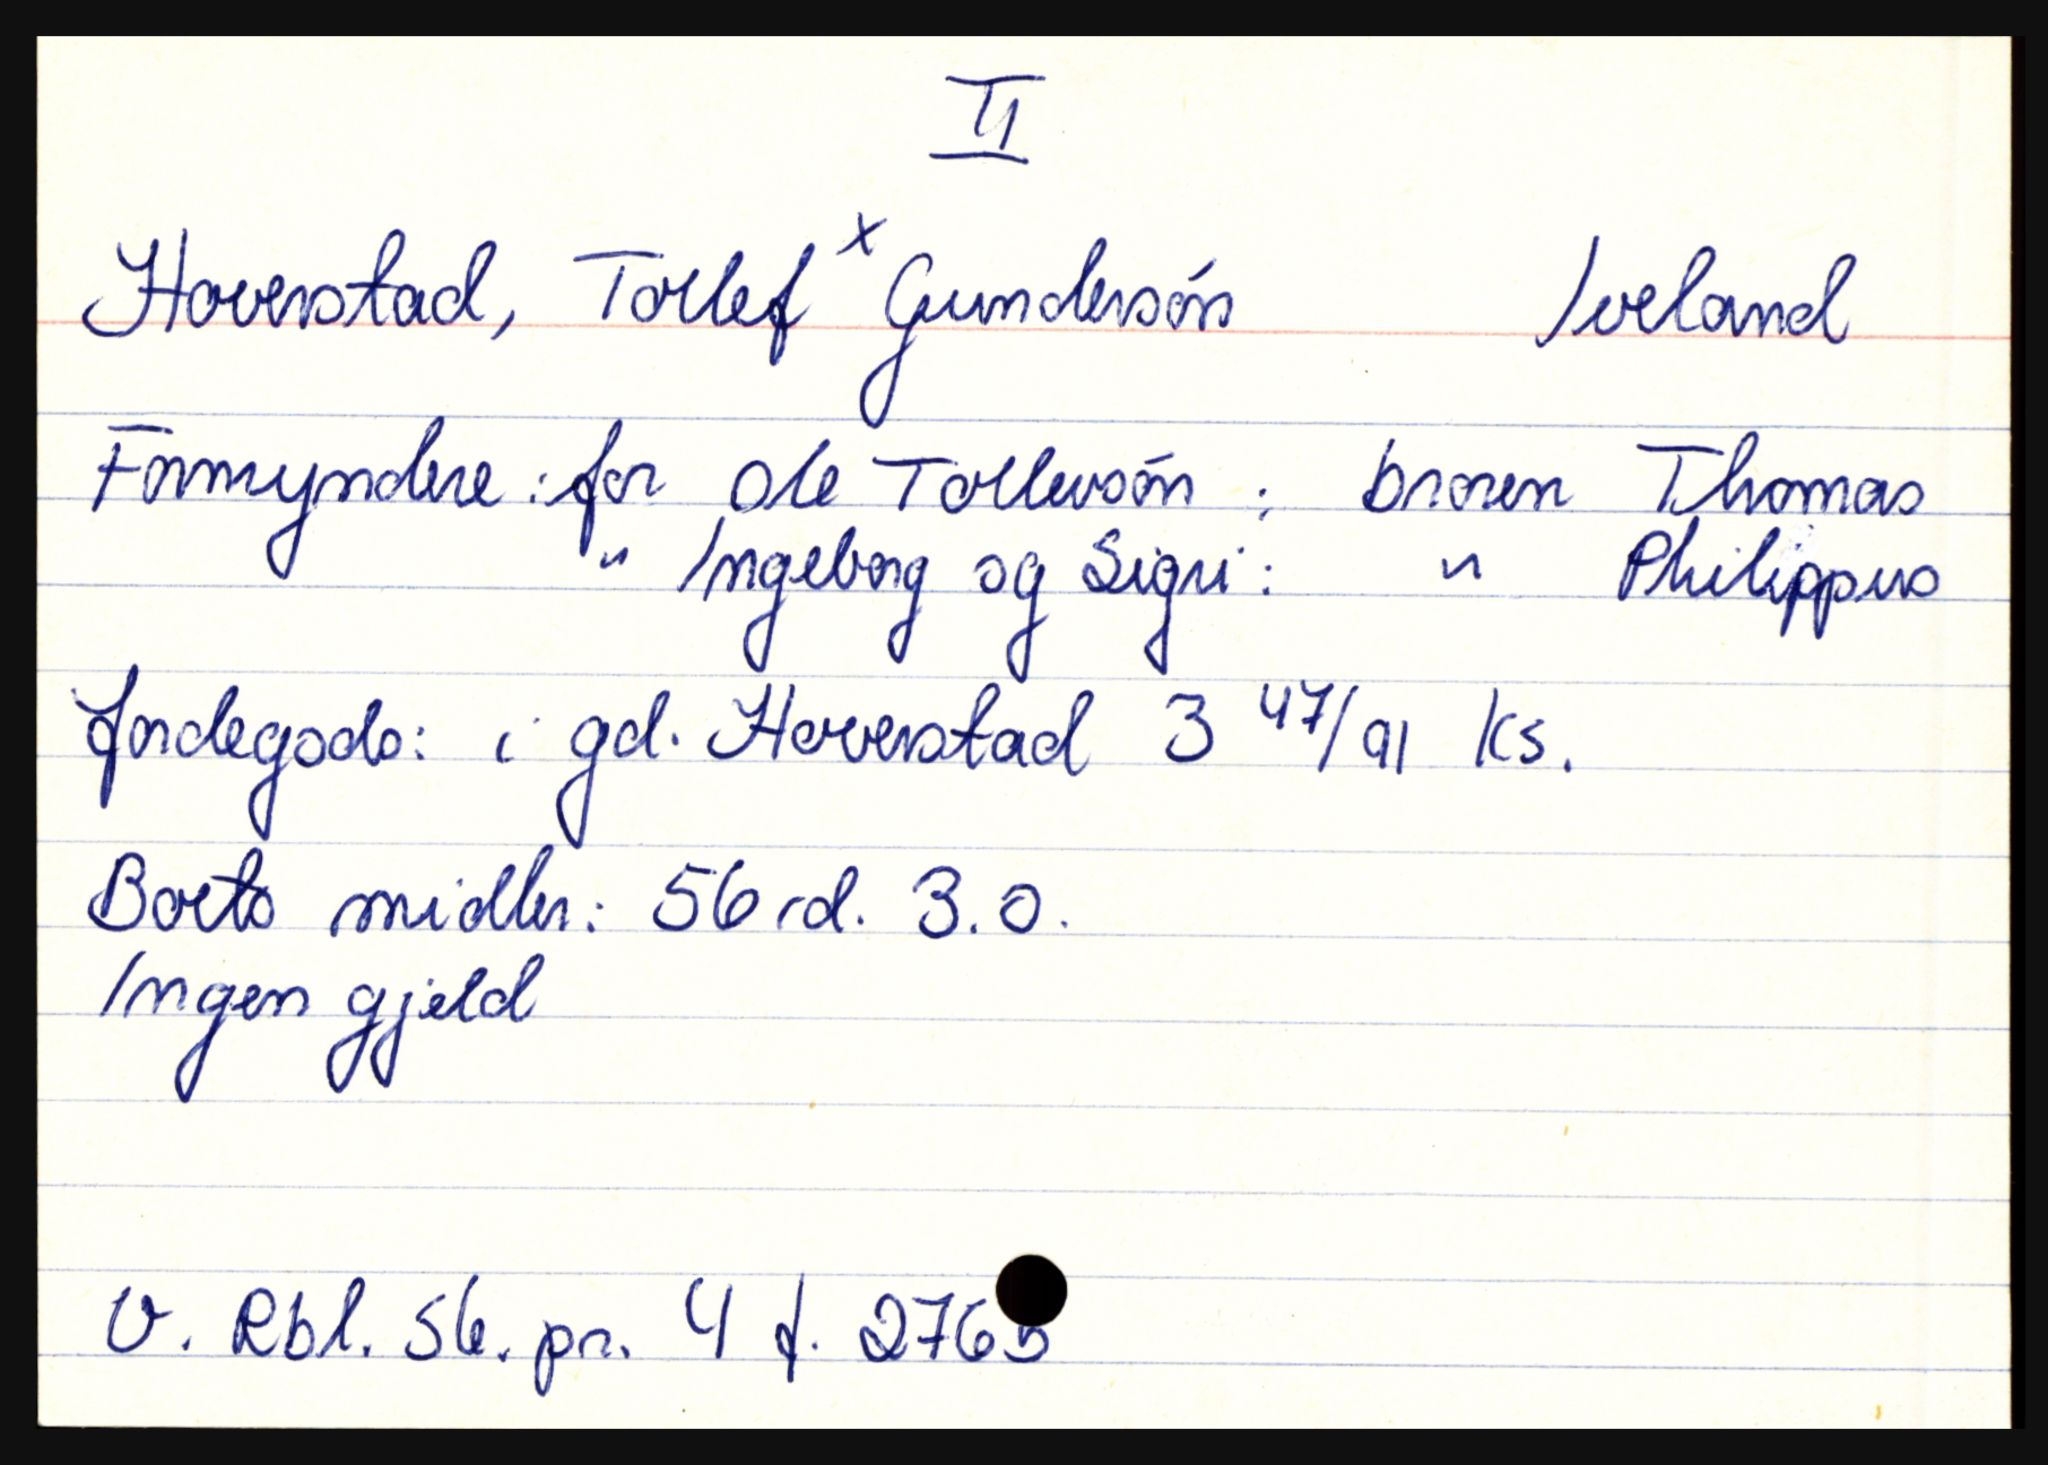 II
Hoverstad, Tollef x Gundersön Iveland
Formyndere: for Ole Tollevsön: broren Thomas
" Ingeborg og Sigri: " Philippus
Jordegods: i gd. Hoverstad 3 47/91 ks.
Boets midler: 56 rd. 3. 0.
Ingen gjeld
V. Rbl. Sk. pr. 4 f. 276b